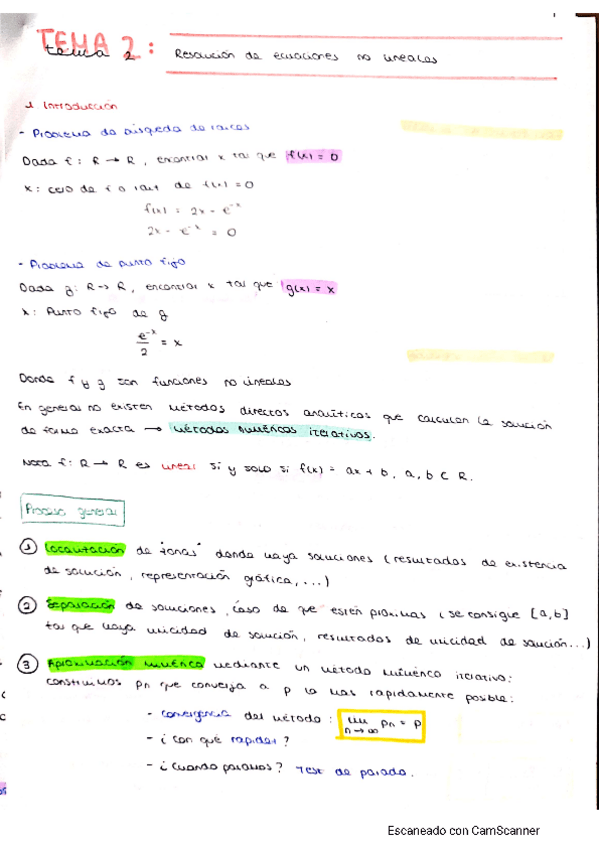 TEMA 2:
tema 2
Resolución de ecuaciones no lineales
1 Introducción
- Problema de búsqueda de raíces
Dada f: R → R, encontrar x tal que f(x) = 0
x: cero de f o raíz de f(x) = 0
f(x) = 2x - e^-x
2x - e^-x = 0
- Problema de punto fijo
Dada g: R → R, encontrar x tal que g(x) = x
x: Punto fijo de g
e^-x / 2 = x
Donde f y g son funciones no lineales
En general no existen métodos directos analíticos que calculen la solución
de forma exacta → métodos numéricos iterativos.
Nota f: R → R es lineal si y solo si f(x) = ax + b, a, b ⊂ R.
Proceso general
① Localización de "zonas" donde haya soluciones (resultados de existencia
de solución, representación gráfica, ...)
② Separación de soluciones, caso de que estén próximas (se consigue [a,b]
tal que haya unicidad de solución, resultados de unicidad de solución...)
③ Aproximación numérica mediante un método numérico iterativo:
construimos pn que converja a p lo más rapidamente posible:
- convergencia del método: lim n→∞ pn = p
- ¿con qué rapidez?
- ¿Cuando paramos? Test de parada.
Escaneado con CamScanner